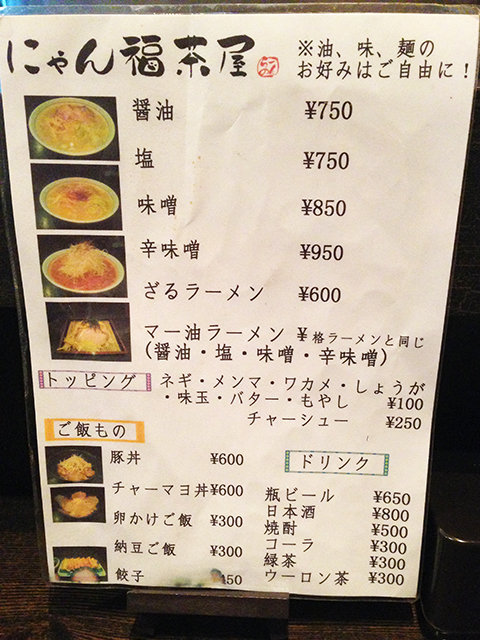 にゃん福茶屋
※油、味、麺の
お好みはご自由に！
醤油 ¥750
塩 ¥750
味噌 ¥850
辛味噌 ¥950
ざるラーメン ¥600
マー油ラーメン ¥ 格ラーメンと同じ
(醤油・塩・味噌・辛味噌)
トッピング
ネギ・メンマ・ワカメ・しょうが
・味玉・バター・もやし ¥100
チャーシュー ¥250
ご飯もの
豚丼 ¥600
チャーマヨ丼¥600
卵かけご飯 ¥300
納豆ご飯 ¥300
餃子 50
ドリンク
瓶ビール ¥650
日本酒 ¥800
焼酎 ¥500
コーラ ¥300
緑茶 ¥300
ウーロン茶 ¥300